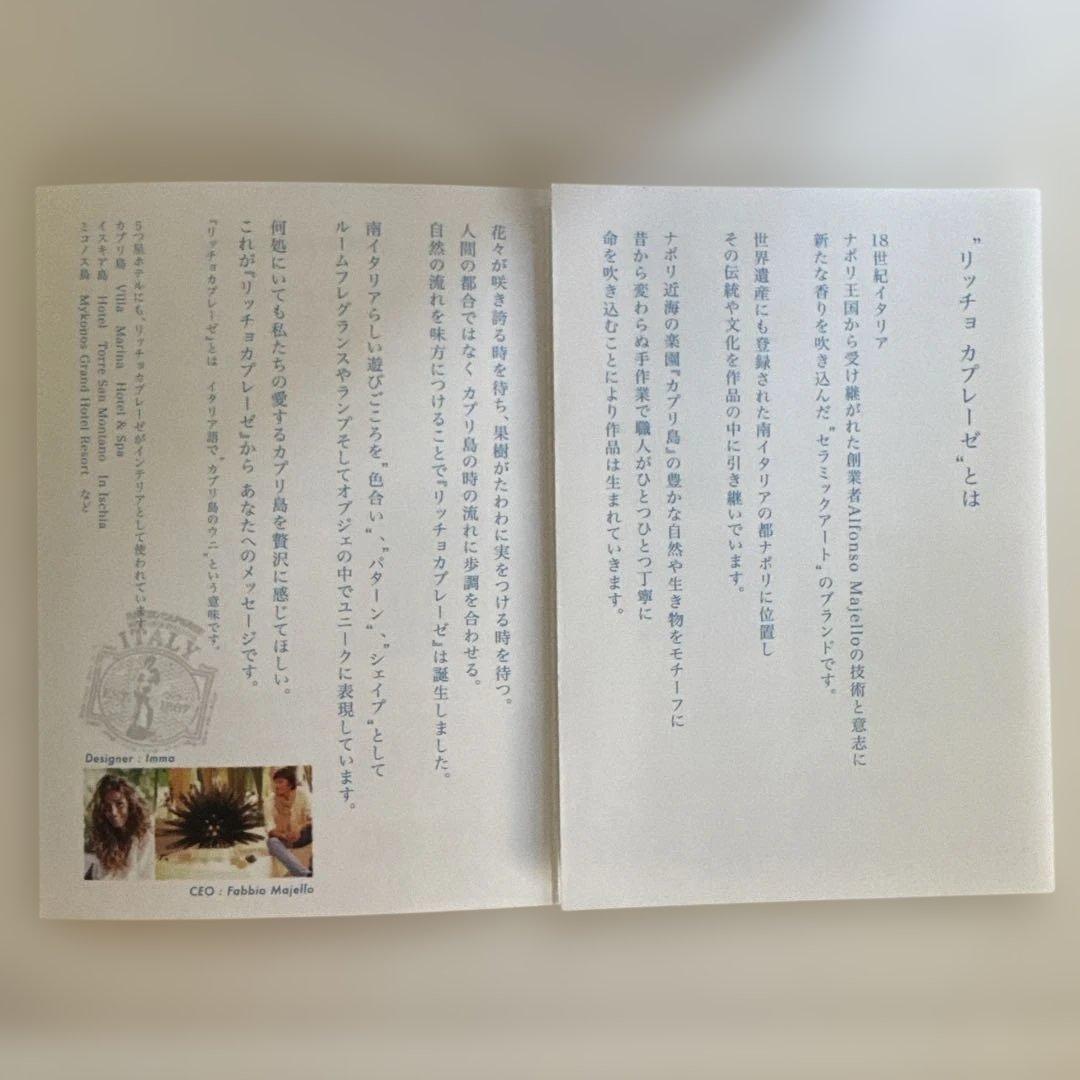 "リッチョ カプレーゼ"とは
18世紀イタリア
ナポリ王国から受け継がれた創業者Alfonso Majelloの技術と意志に
新たな香りを吹き込んだ"セラミックアート"のブランドです。
世界遺産にも登録された南イタリアの都ナポリに位置し
その伝統や文化を作品の中に引き継いでいます。
ナポリ近海の楽園『カプリ島』の豊かな自然や生き物をモチーフに
昔から変わらぬ手作業で職人がひとつひとつ丁寧に
命を吹き込むことにより作品は生まれていきます。
花々が咲き誇る時を待ち、果樹がたわわに実をつける時を待つ。
人間の都合ではなく カプリ島の時の流れに歩調を合わせる。
自然の流れを味方につけることで『リッチョカプレーゼ』は誕生しました。
南イタリアらしい遊びごころを"色合い"、"パターン"、"シェイプ"として
ルームフレグランスやランプそしてオブジェの中でユニークに表現しています。
何処にいても私たちの愛するカプリ島を贅沢に感じてほしい。
これが『リッチョカプレーゼ』から あなたへのメッセージです。
『リッチョカプレーゼ』とは イタリア語で"カプリ島のウニ"という意味です。
5つ星ホテルにも、リッチョカプレーゼがインテリアとして使われています。
カプリ島 Villa Marina Hotel & Spa
イスキア島 Hotel Torre San Montano In Ischia
ミコノス島 Mykonos Grand Hotel Resort など
ITALY
Designer : Imma
CEO : Fabbio Majello